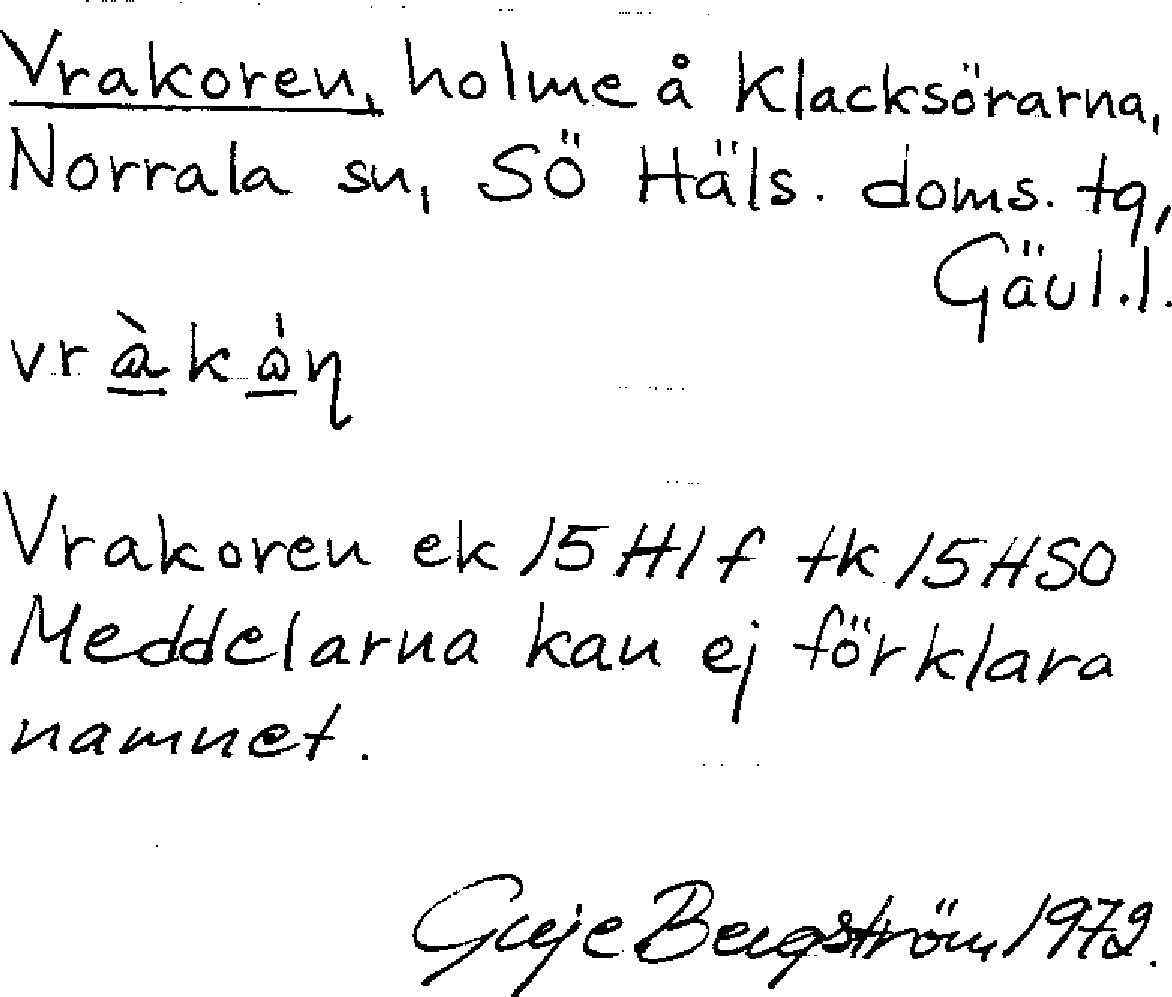 Vrakoren, holme å Klacksörarna,
Norrala sn, SÖ Häls. doms. tg,
Gävl.l.
Vrakoren ek 15 H1f tk 15HSO
Meddelarna kan ej förklara
namnet.
Bergström 1972.